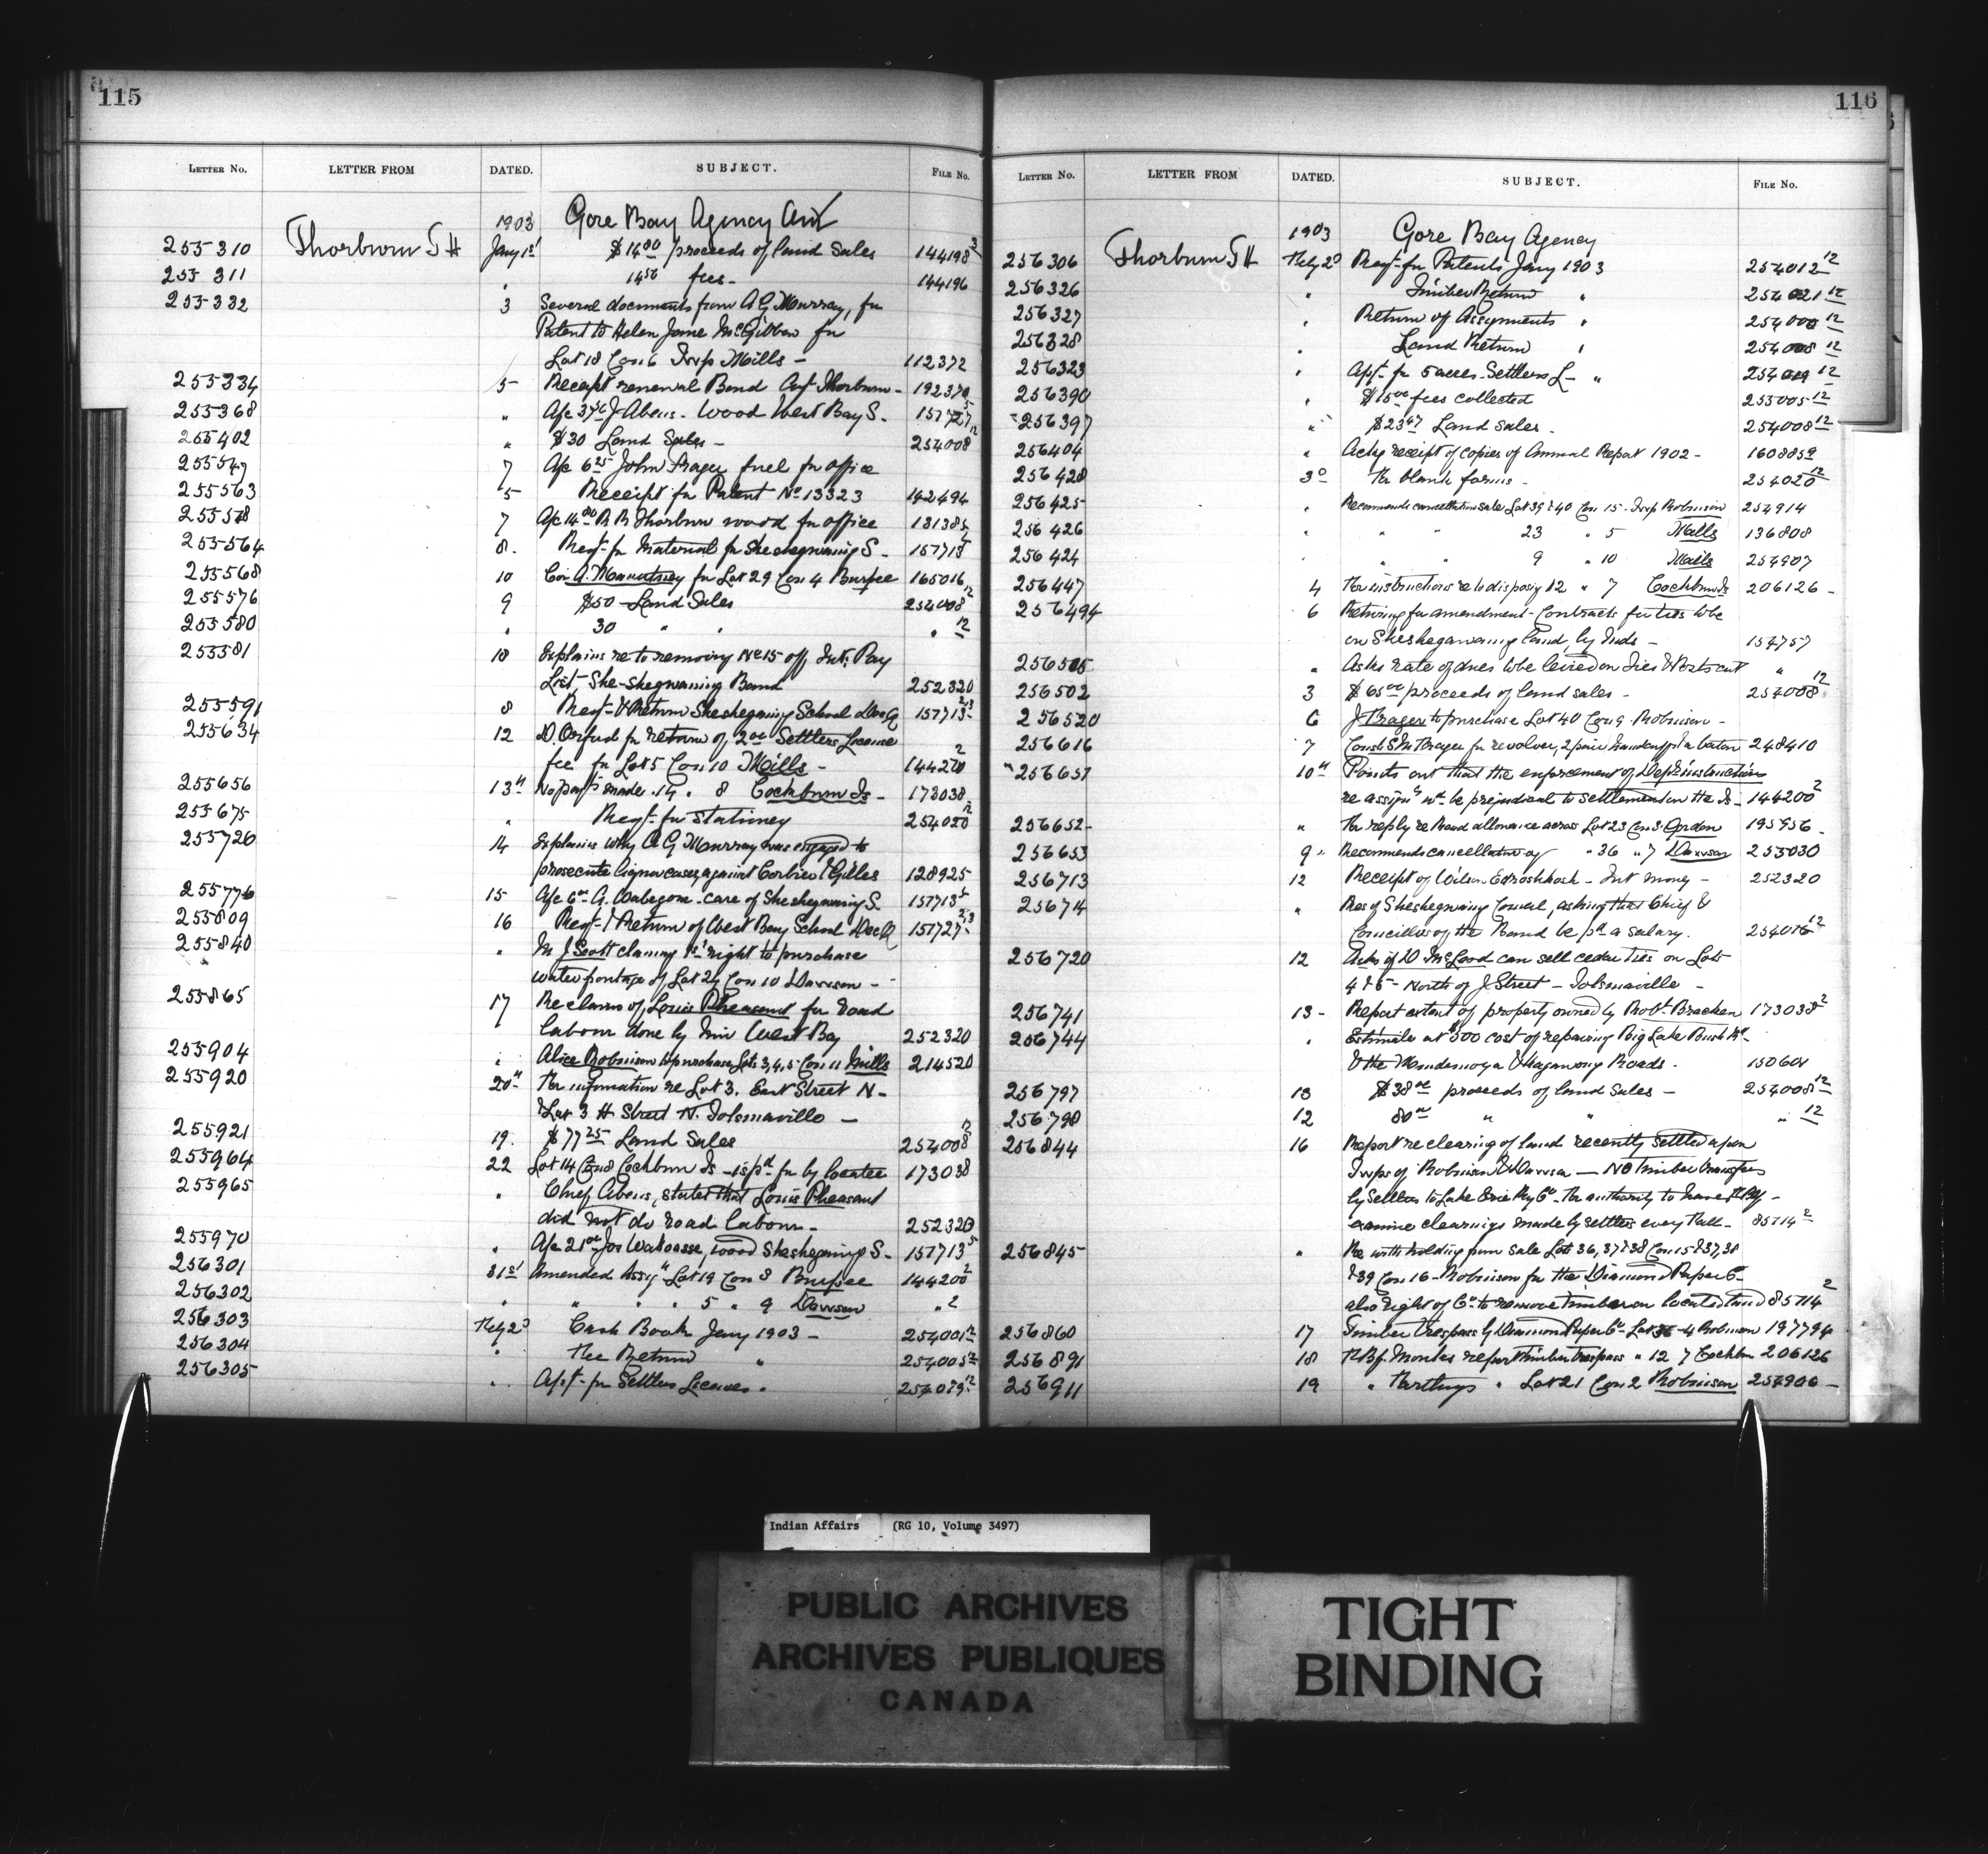 115
LETTER NO. LETTER FROM DATED. SUBJECT. FILE No.
1903 Gore Bay Agency
255310 Thorburn J H Jany 1st $14.00 proceeds of land sales 144198
255311 " 14.56 fees - 144196
255332 3 Several documents from A G Murray, for
Patent to Helen Jane McGibbon for
Lot 18 Con 6 Twp Mills - 112372
255334 5 Receipt renewal Bond Agt Thorburn - 192370
255368 " J Abens - Wood West Bay S. 157727
255402 " $30 Land Sales - 254008 12
255547 7 Apc 6.25 John Fraser fuel for office
255563 5 Receipt for Patent No 13323 142494
255578 7 Apc 14.00 R B Thorburn wood for office
255564 8. Reqt. for Material for Sheshegwaning S - 157713
255568 10 for Lot 29 Con 4 Burpee 165016
255576 9 $50 Land Sales 254008 12
255580 " 30 " " " 12
255581 10 Explains re to removing No 15 off Int. Pay
List, She-shegwaning Band 252320
255591 8 Reqt. & Return Sheshegwaning School Dec Q 157713 2,3
255634 12 for return of 2.00 Settlers License
fee for Lot 5 Con 10 Mills - 144200 2
255656 13th No payts made 14 . 8 Cockburn Is - 173038
255675 " Reqt. for stationery 254020 12
255720 14 Explains why A G Murray was engaged to
prosecute liquor cases against Corbier & Gilles 128925
255776 15 Apc 6.00 G. Wabegone - care of Sheshegwaning S. 157713 5
255809 16 Reqt. & Return of West Bay School Dec Q 157727 2,3
255840 " Mr J Scott claiming 1st right to purchase
water frontage of Lot 29 Con 10 Dawson -
255865 17 Re claim of Louis Pheasant for road
labour done by him West Bay 252320
255904 " Alice Robinson to purchase Lots 3,4,5 Con 11 Mills 214520
255920 20th For information re Lot 3. East Street N -
& Lot 3 H Street N. Tolsmaville -
255921 19. $77.25 Land Sales 254008 12
255964 22 Lot 14 Con 8 Cockburn Is - is pd for by locatee 173038
255965 " Chief Abens, states that Louis Pheasant
did not do road labour - 252320
255970 " Apc 21.00 Jos Wakoosse, wood Sheshegwaning S - 157713 5
256301 31st Amended Assigt Lot 19 Con 3 Burpee 144200 2
256302 " " " 5 " 9 Dawson " 2
256303 Feby 2d Cash Book Jany 1903 - 254001 12
256304 " Fee Return " 254005 12
256305 " Apt. for Settlers Licenses " 254019 12
116
LETTER No. LETTER FROM DATED. SUBJECT. FILE NO.
1903 Gore Bay Agency
256306 Thorburn J H Feby 2d Reqt. for Patents Jany 1903 254012 12
256326 " Timber Return " 254021 12
256327 " Return of Assignments " 254000 12
256328 " Land Return " 254008 12
256323 " Apt. for 5 acres - Settlers L - " 254019 12
256390 " $15.00 fees collected 255005 12
256397 " $23.47 Land sales - 254008 12
256404 " Ackg receipt of copies of Annual Report 1902 - 160885
256428 3d For blank forms - 254020 12
256425 " Recommends cancellation sale Lot 39 & 40 Con 15 - Twp Robinson 254914
256426 " " " 23 " 5 Mills 136808
256424 " " " 9 " 10 Mills 254907
256447 4 For instructions re to disposing 12 " 7 Cockburn Is 206126 -
256494 6 Returning for amendment - Contracts for ties to be
on Sheshegwaning land, by Inds - 157757
256505 " Asks rate of dues to be levied on Ties & Posts cut "
256502 3 $65.00 proceeds of land sales - 254008 12
256520 6 J Prager to purchase Lot 40 Con 9 - Robinson -
256616 7 Const S M Fraser for revolver, 2 pair handcuffs & a baton 248410
256651 10th Points out that the enforcement of Dept's instructions
re assignts wd be prejudicial to settlement on the Is - 144200 2
256652 - " For reply re Road allowance across Lot 23 Con 3 Gordon 195956 -
256653 9 - Recommends cancellation of " 36 " 7 Dawson 255030
256713 12 Receipt of Wilson - Int money - 252320
256714 " Res of Sheshegwaning Council, asking that Chief &
Councillors of the Band be pd a salary. 254016 12
256720 12 Asks if D McLeod can sell cedar ties on Lots
4 & 5 - North of J Street - Tolsmaville -
256741 13 - Report extent of property owned by Robt. Bracken 173038 2
256744 " Estimate at $500 cost of repairing Big Lake Bush Rd -
& the Mindemoya & Kagawong Roads - 150601
256797 13 $38.00 proceeds of land sales - 254008 12
256798 12 80.00 " " " 12
256844 16 Report re clearing of land recently settled upon
Twps of Robinson & Dawson - No timber transfers
by settlers to Lake Erie Ry Co - For authority to have
examine clearings made by settlers every Fall - 85714 2
256845 " Re with holding from sale Lots 36, 37 & 38 Con 15 & 37, 38
& 39 Con 16 - Robinson for the Diamond Paper Co -
also right of Co to remove timber on located land 85714 2
256860 17 Timber trespass by Diamond Paper Co - Lot 36 - 4 Robinson 197794
256891 18 F Bf. Monks report timber trespass " 12 7 Cockbn 206126
256911 19 " Lot 21 Con 2 Robinson 254906 -
Indian Affairs (RG 10, Volume 3497)
PUBLIC ARCHIVES
ARCHIVES PUBLIQUES
CANADA
TIGHT
BINDING